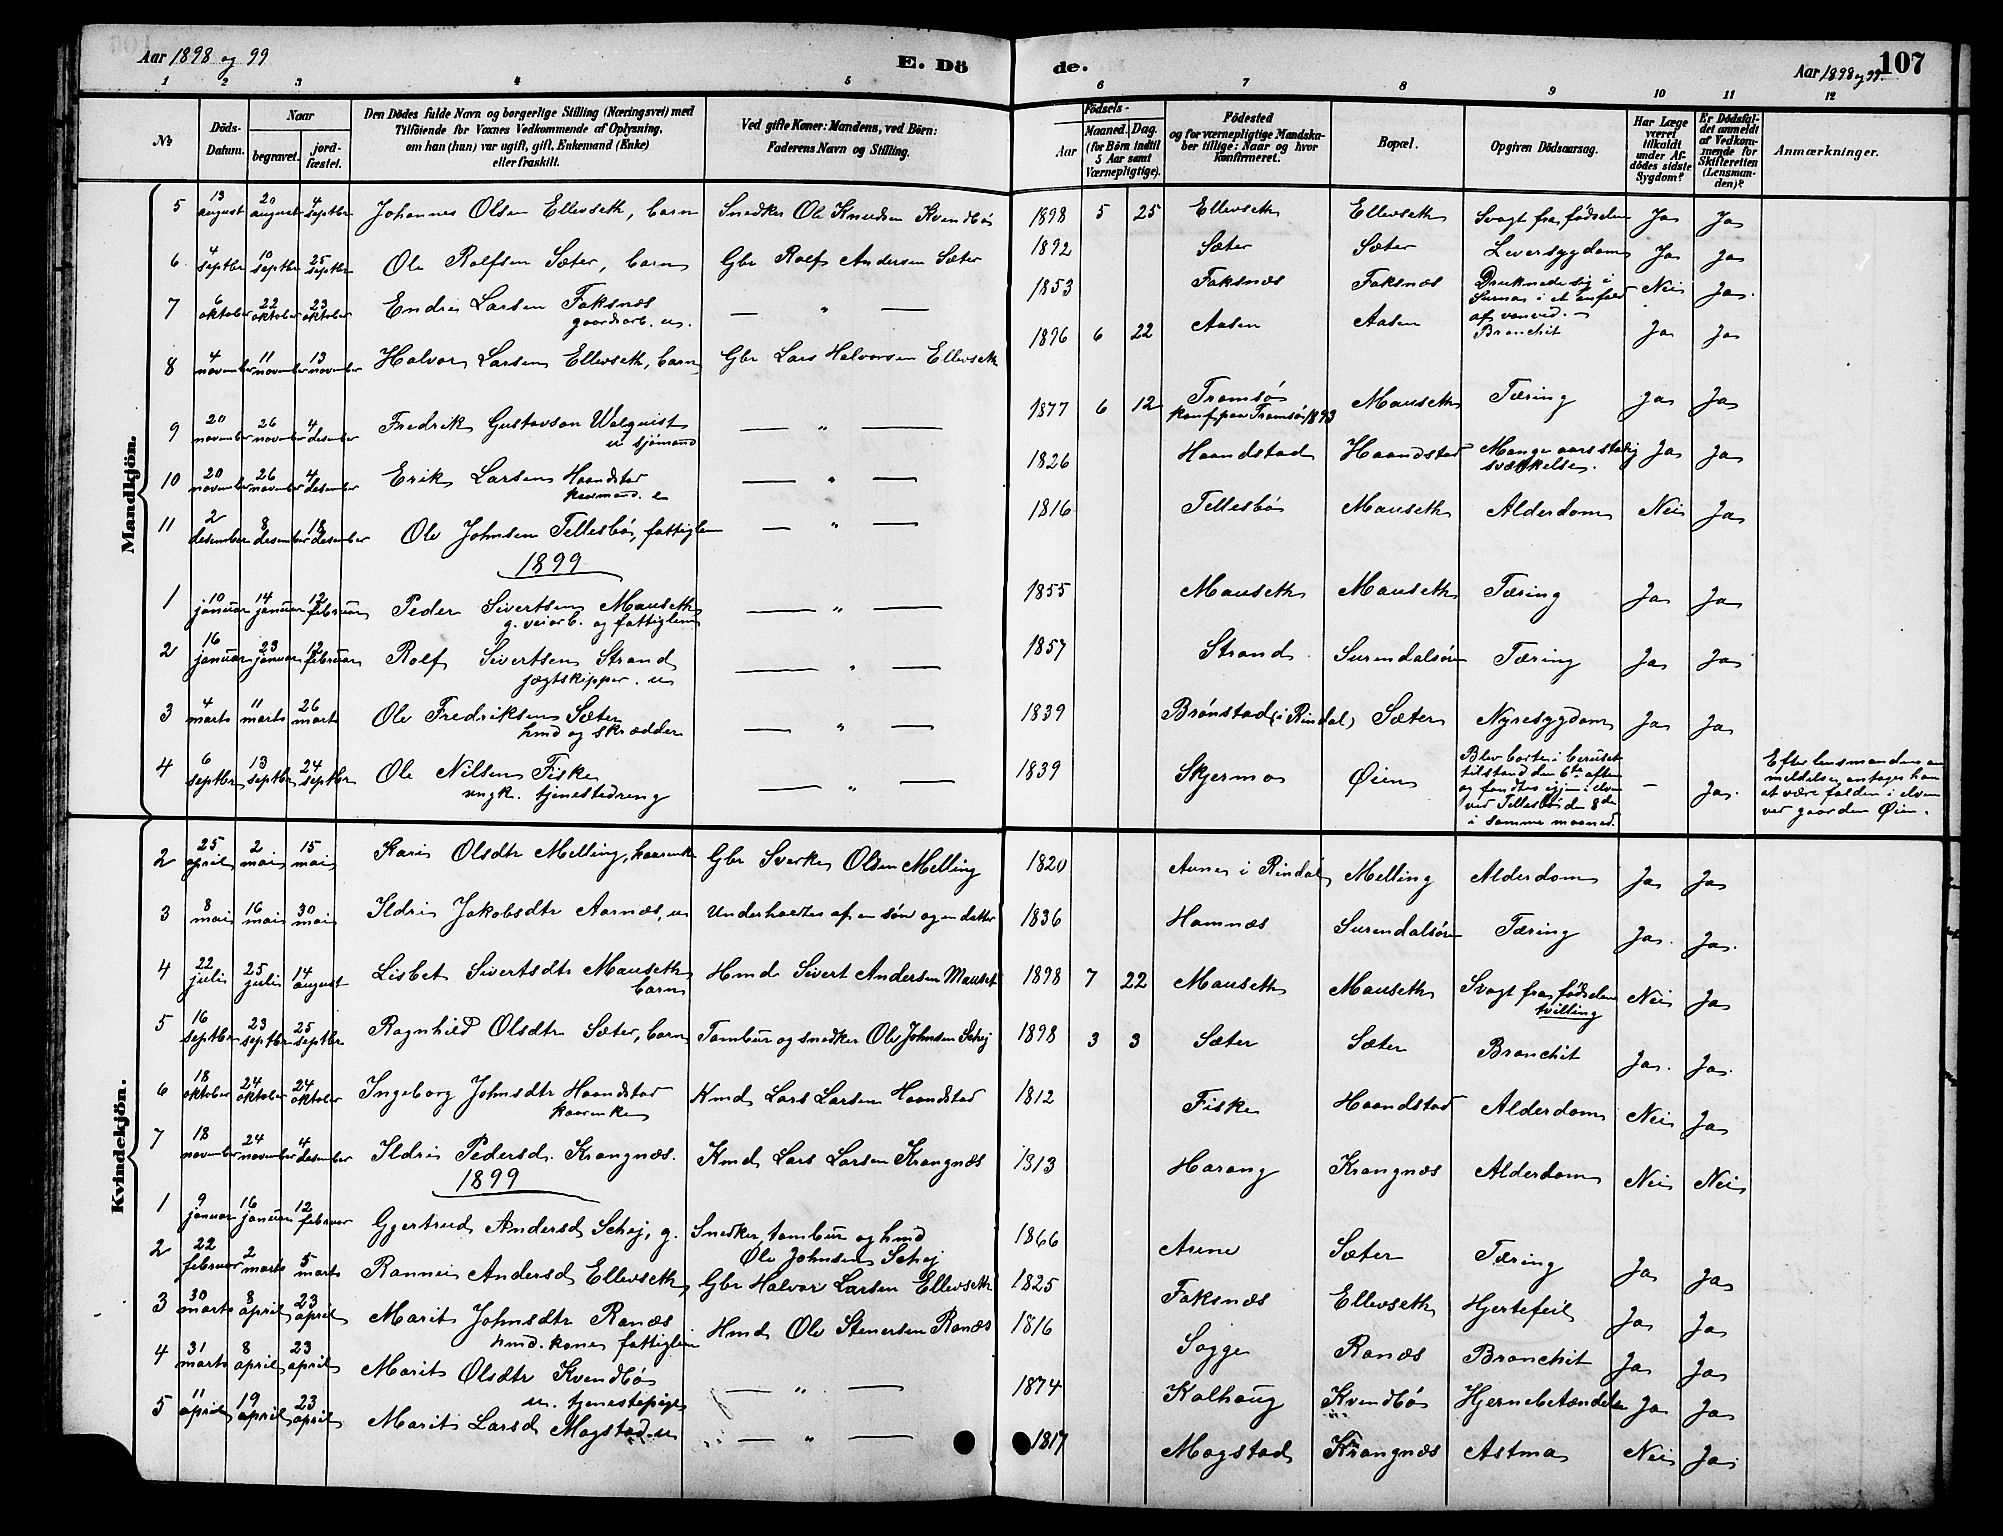 Aar 1898 og 99
E. Dö
de.
Aar 1898 og 99.
107
1 2 3 4 5 6 7 8 9 10 11 12
№
Döds-Datum.
Naar
begravet.
jord-fæstet.
Den Dödes fulde Navn og borgerlige Stilling (Næringsvei) med
Tilföiende for Voxnes Vedkommende af Oplysning,
om han (hun) var ugift, gift, Enkemand (Enke)
eller fraskilt.
Ved gifte Koner: Mandens, ved Börn:
Faderens Navn og Stilling.
Födsels-
Aar
Maaned. Dag.
(for Börn indtil
5 Aar samt
Værnepligtige).
Födested
og for værnepligtige Mandska-
ber tillige: Naar og hvor
konfirmeret.
Bopæl.
Opgiven Dödsaarsag.
Har Læge
været
tilkaldt
under Af-
dödes sidste
Sygdom?
Er Dödsfal-
det anmeldt
af Vedkom-
mende for
Skifteretten
(Lensman-
den)?
Anmærkninger.
Mandkjön.
5 13 august 20 august 4 septbr Johannes Olsen Ellevseth, barn Snedker Ole Knudsen Kvendbø 1898 5 25 Ellevseth Ellevseth Svagt fra fødselen Ja Ja
6 4 septbr 10 septbr 25 septbr Ole Rolfsen Sæter, barn Gbr Rolf Andersen Sæter 1892 Sæter Sæter Leversygdom Ja Ja
7 6 oktober 22 oktober 23 oktober Endre Larsen Faksnæs — " — 1853 Faksnæs Faksnæs Druknede sig i Nei Ja.
gaardarb. u. Surnas i et anfald
af vanvid.
8 4 november 11 november 13 november Halvor Larsen Ellevseth, barn Gbr Lars Halvorsen Ellevseth 1896 6 22 Aasen Aasen Bronchit Ja Ja
9 20 november 26 november 4 desember Fredrik Gustavson Walquist — " — 1877 6 12 Tromsø Mauseth Tæring Ja Ja
u sjömand konf. paa Tromsø 1893
10 20 november 26 november 4 desember Erik Larsen Haandstad — " — 1826 Haandstad Haandstad Mange aars stadig Ja Ja
kaarmand. e svækkelse.
11 2 desember 8 desember 18 desember Ole Johnsen Tellesbø, fattiglem — " — 1816 Tellesbø Mauseth Alderdom Nei Ja
1899
1 10 januar 14 januar 12 februar Peder Sivertsen Mauseth — " — 1855 Mauseth Mauseth Tæring Ja Ja
g. veiarb. og fattiglem
2 16 januar 23 januar 12 februar Rolf Sivertsen Strand — " — 1857 Strand Surendalsøren Tæring Ja Ja
jægtskipper. u
3 4 marts 11 marts 26 marts Ole Fredriksen Sæter — " — 1839 Brønstad (i Rindal) Sæter Nyresygdom Ja Ja
hmd og skrædder
4 6 septbr 13 septbr 24 septbr Ole Nilsen Fiske — " — 1839 Skjermo Øien Blev borte i beruset — Ja. Efter lensmandens an
ungk. tjenestedreng tilstand den 6te aften meldelse antages han
og fandtes igjen i elven at være falden i elven
ved Tellesbø den 8de ved gaarden Øien.
i samme maaned.
Kvindekjön.
2 25 april 2 mai 15 mai Kari Olsdtr Melling, kaarenke Gbr Sverke Olsen Melling 1820 Aune i Rindal Melling Alderdom Ja Ja
3 8 mai 16 mai 30 mai Ildri Jakobsdtr Aarnæs, u Underholdtes af en søn og en datter 1836 Hamnæs Surendalsøren Tæring Ja. Ja.
4 22 juli 25 juli 14 august Lisbet Sivertsdtr Mauseth Hmd Sivert Andersen Mauset 1898 7 22 Mauseth Mauseth Svagt fra fødselen Nei Ja
barn tvilling
5 16 septbr 23 septbr 25 septbr Ragnhild Olsdtr Sæter, barn Tambur og snedker Ole Johnsen Schej 1898 3 3 Sæter Sæter Bronchit Ja. Ja.
6 18 oktober 24 oktober 24 oktober Ingeborg Johnsdtr Haandstad Kmd Lars Larsen Haandstad 1812 Fiske Haandstad Alderdom Nei Ja
kaarenke
7 18 november 24 november 4 desember Ildri Pedersd. Krangnæs. Kmd Lars Larsen Krangnæs 1813 Harang Krangnæs Alderdom Nei Nei
1899
1 9 januar 16 januar 12 februar Gjertrud Andersd Schej, g. Snedker, tambur og hmd 1866 Aune Sæter Tæring Ja Ja
Ole Johnsen Schej
2 22 februar 2 marts 5 marts Rannei Andersd Ellevseth, Gbr Halvor Larsen Ellevseth 1825 Faksnæs Ellevseth Hjertefeil Ja Ja
3 30 marts 8 april 23 april Marit Johnsdtr Ranæs Hmd Ole Stenersen Ranæs 1816 Sogge Ranæs Bronchit Ja Ja
hmd. kone fattiglem
4 31 marts 8 april 23 april Marit Olsdtr Kvendbø — " — 1874 Kalhaug Kvendbø Hjernebetændelse Ja Ja
u. tjenestepige
5 11 april 19 april 23 april Marit Larsd Mogstad u — " — 1817 Mogstad Krangnæs Astma Nei Ja